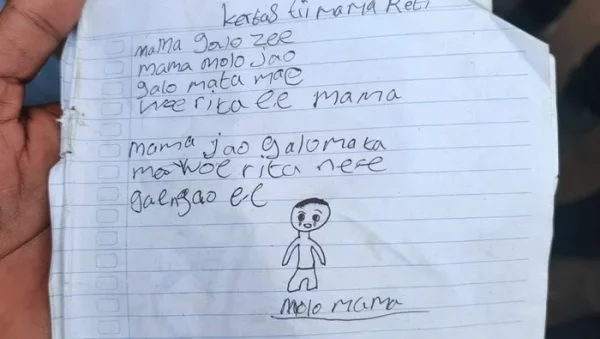 kertas tii mama Reti
mama galo zee
mama molo jao
galo mata mae
woe rita ee mama
mama jao galo mata
mae woe rita ne e
gae ngao e-e
molo mama